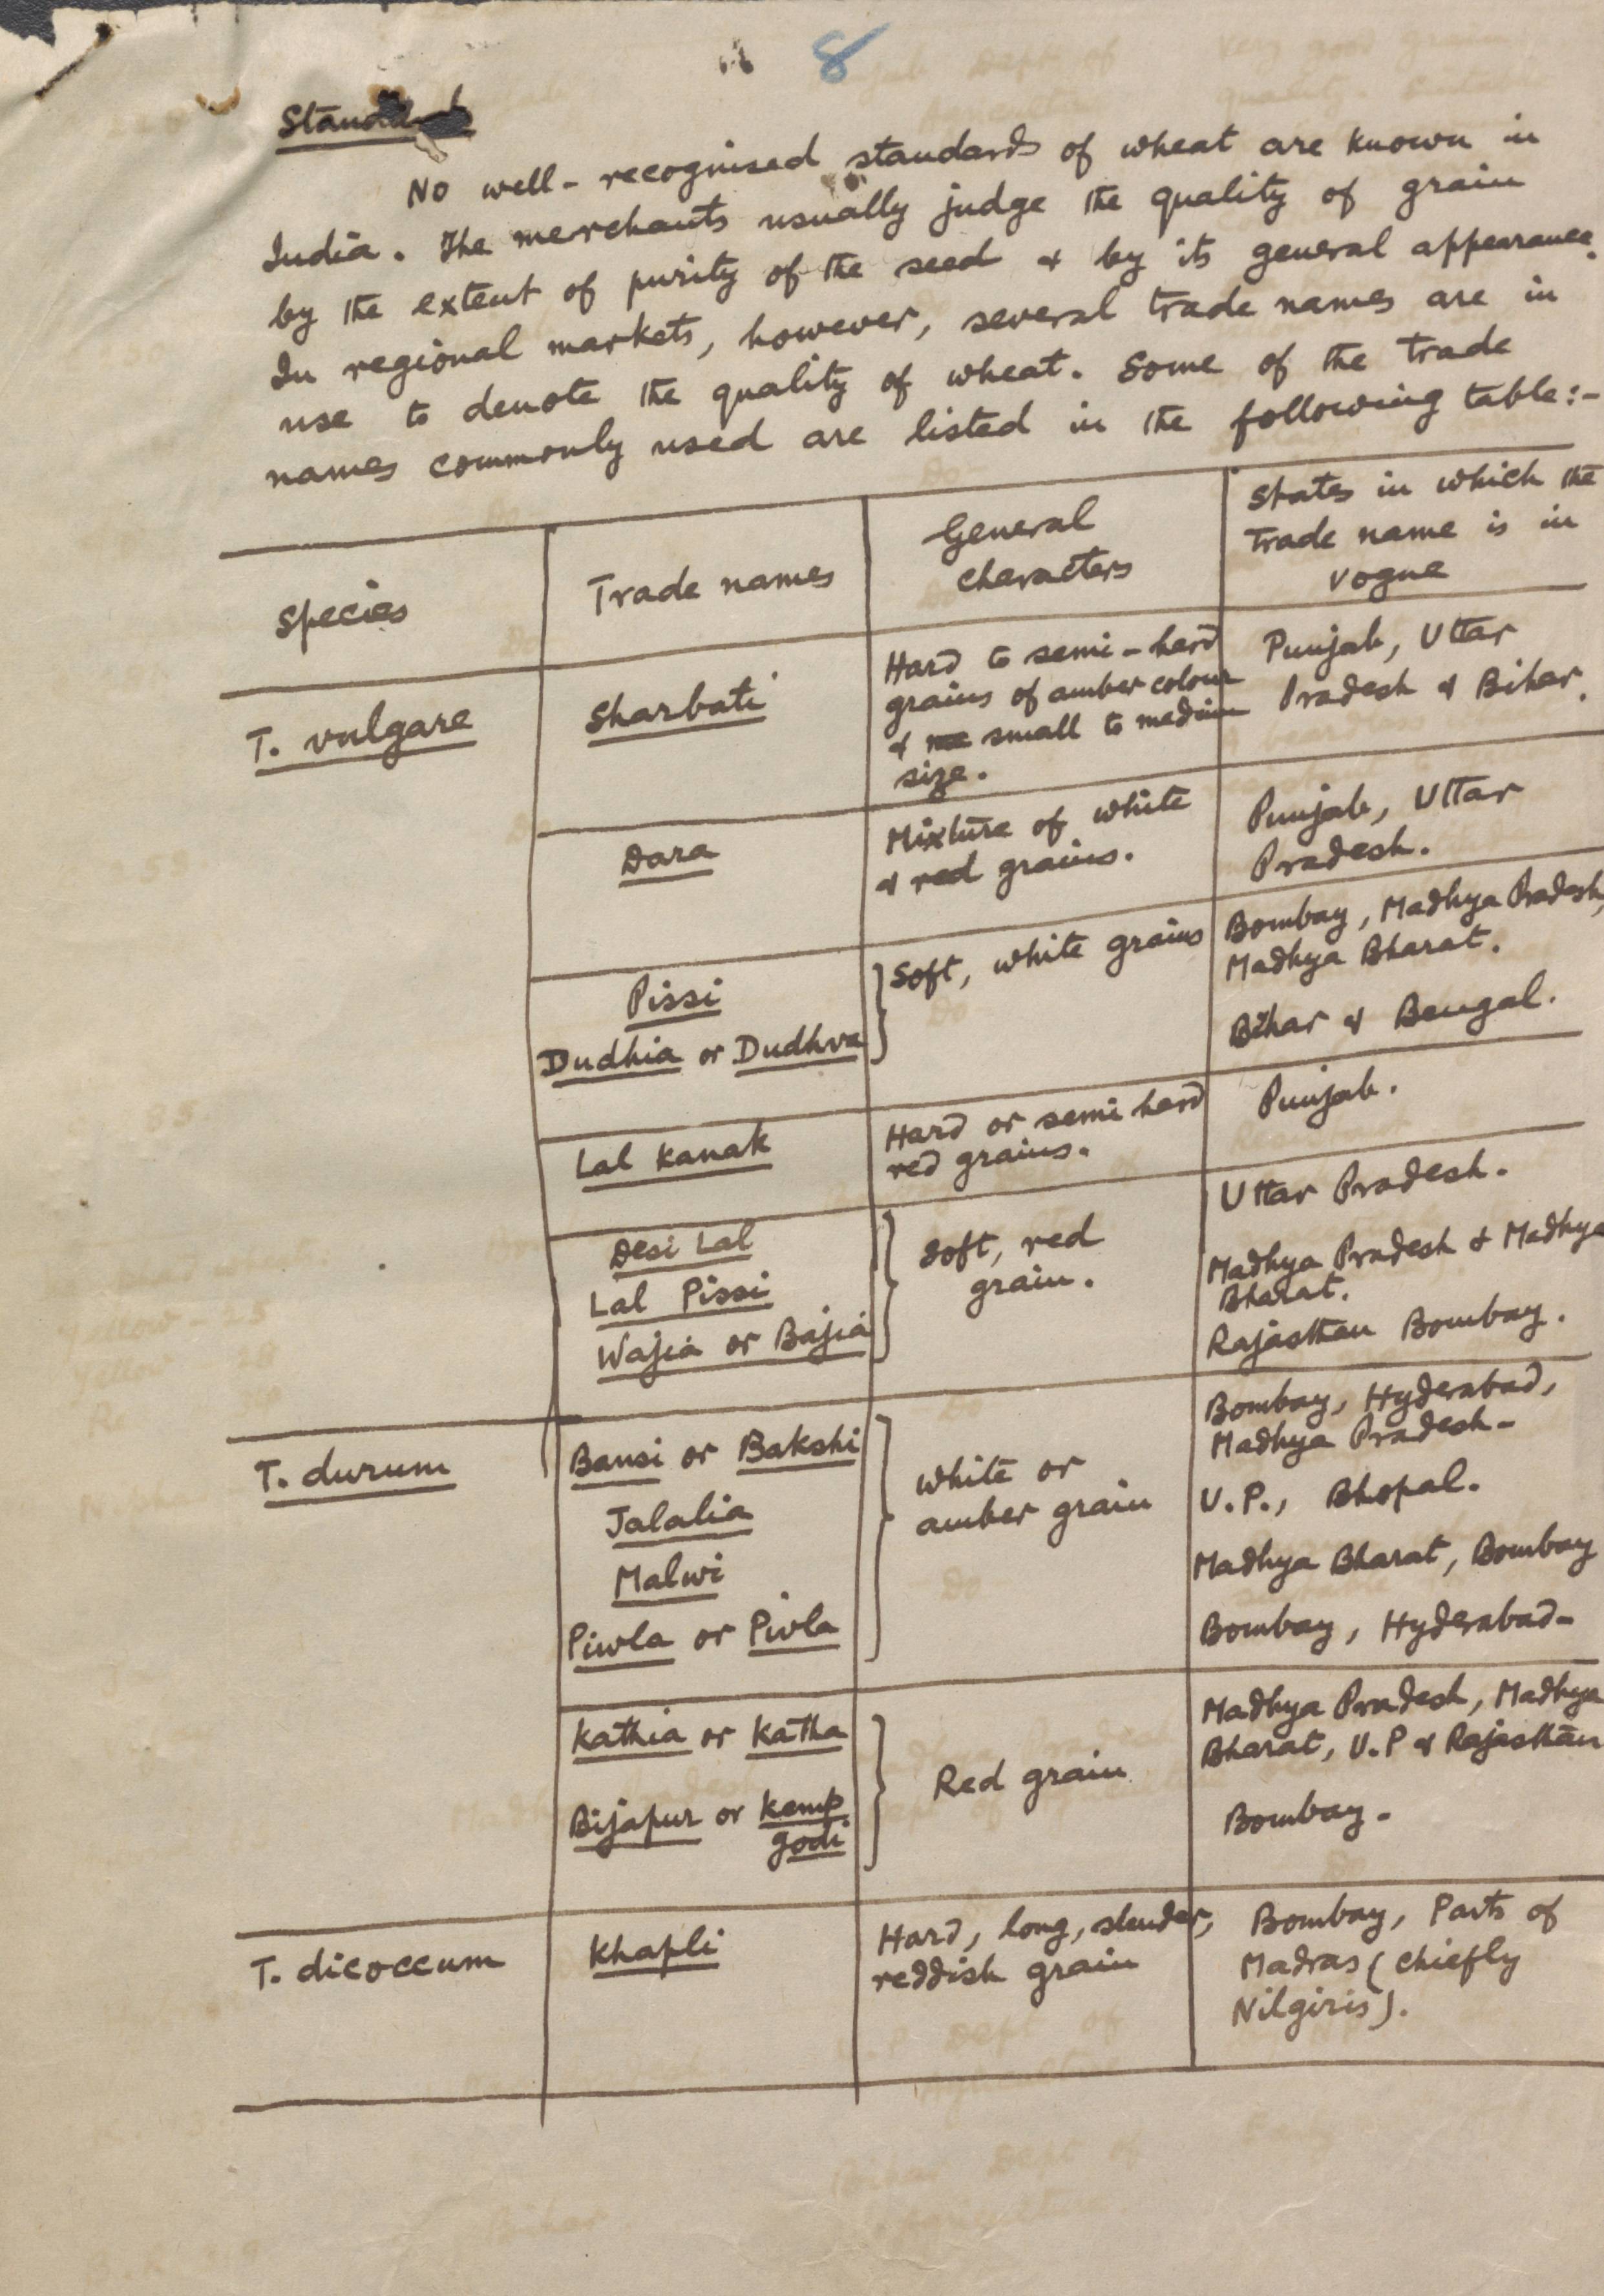 8
Standards
No well-recognised standards of wheat are known in
India. The merchants usually judge the quality of grain
by the extent of purity of the seed & by its general appearance.
In regional markets, however, several trade names are in
use to denote the quality of wheat. Some of the trade
names commonly used are listed in the following table:-
Species
Trade names
General
characters
States in which the
trade name is in
vogue
T. vulgare
Sharbati
Hard to semi-hard
grains of amber colour
& small to medium
size.
Punjab, Uttar
Pradesh & Bihar.
Dara
Mixture of white
& red grains.
Punjab, Uttar
Pradesh.
Pissi
Dudhia or Dudhva
Soft, white grains
Bombay, Madhya Pradesh,
Madhya Bharat.
Bihar & Bengal.
Lal Kanak
Hard or semi hard
red grains.
Punjab.
Desi Lal
Lal Pissi
Wajia or Bajia
Soft, red
grain.
Uttar Pradesh.
Madhya Pradesh & Madhya
Bharat.
Rajasthan Bombay.
T. durum
Bansi or Bakshi
Jalalia
Malwi
Piwla or Pivla
white or
amber grain
Bombay, Hyderabad,
Madhya Pradesh-
U.P., Bhopal.
Madhya Bharat, Bombay
Bombay, Hyderabad-
Kathia or Katha
Bijapur or Kemp
godi
Red grain
Madhya Pradesh, Madhya
Bharat, U.P & Rajasthan
Bombay-
T. dicoccum
Khapli
Hard, long, slender,
reddish grain
Bombay, Parts of
Madras (chiefly
Nilgiris).